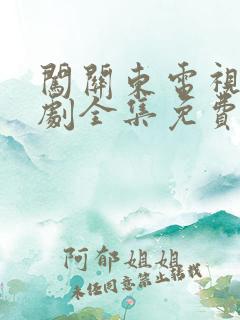 闖關東電視
劇全集免費
阿郁姐姐
未经同意禁止转载